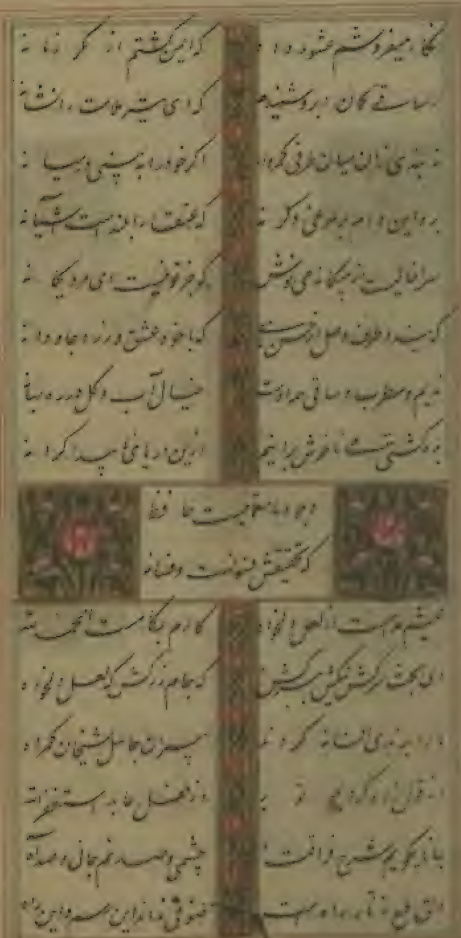 نگار میفروشم عشوه داد که ایمن گشتم از مکر زمانه
ز ساقی کمان ابرو شنیدم که ای تیر ملامت را نشانه
نه بندی زان میان طرفی کمروار اگر خود را به بینی در میانه
برو این دام بر مرغی دگر نه که عنقا را بلندست آشیانه
سرا خالیست از بیگانه می نوش که جز تو نیست ای مرد یگانه
که بندد طرف وصل از حسن که با خود عشق ورزد جاودانه
ندیم و مطرب و ساقی همه اوست خیال آب و گل در ره بهانه
بده کشتی می تا خوش برانیم ازین دریای ناپیدا کرانه
وجود ما معماییست حافظ
که تحقیقش فسونست و فسانه
عیشم مدامست از لعل دلخواه کارم بکامست الحمد لله
ای بخت سرکش تنگش ببر کش که جام زر کش که لعل دلخواه
ما را به رندی افسانه کردند پیران جاهل شیخان گمراه
از قول زاهد کردیم توبه وز فعل عابد استغفرالله
جانا چگویم شرح فراقت چشمی و صد نم جانی و صد آه
دلق صوفی نداند این رسم و این راه